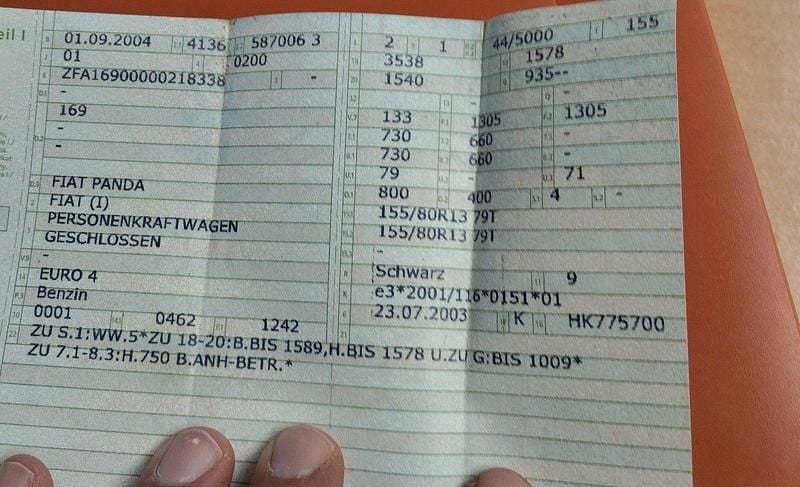 eil I
01.09.2004 4136 587006 3
01 0200
ZFA16900000218338 -
-
169
-
-
FIAT PANDA
FIAT (I)
PERSONENKRAFTWAGEN
GESCHLOSSEN
-
EURO 4
Benzin
0001 0462 1242
2 1 44/5000 155
3538 1578
1540 935--
- -
133 1305 1305
730 660 -
730 660 -
79 71
800 400 4 -
155/80R13 79T
155/80R13 79T
-
Schwarz 9
e3*2001/116*0151*01
23.07.2003 K HK775700
ZU S.1:WW.5*ZU 18-20:B.BIS 1589,H.BIS 1578 U.ZU G:BIS 1009*
ZU 7.1-8.3:H.750 B.ANH-BETR.*